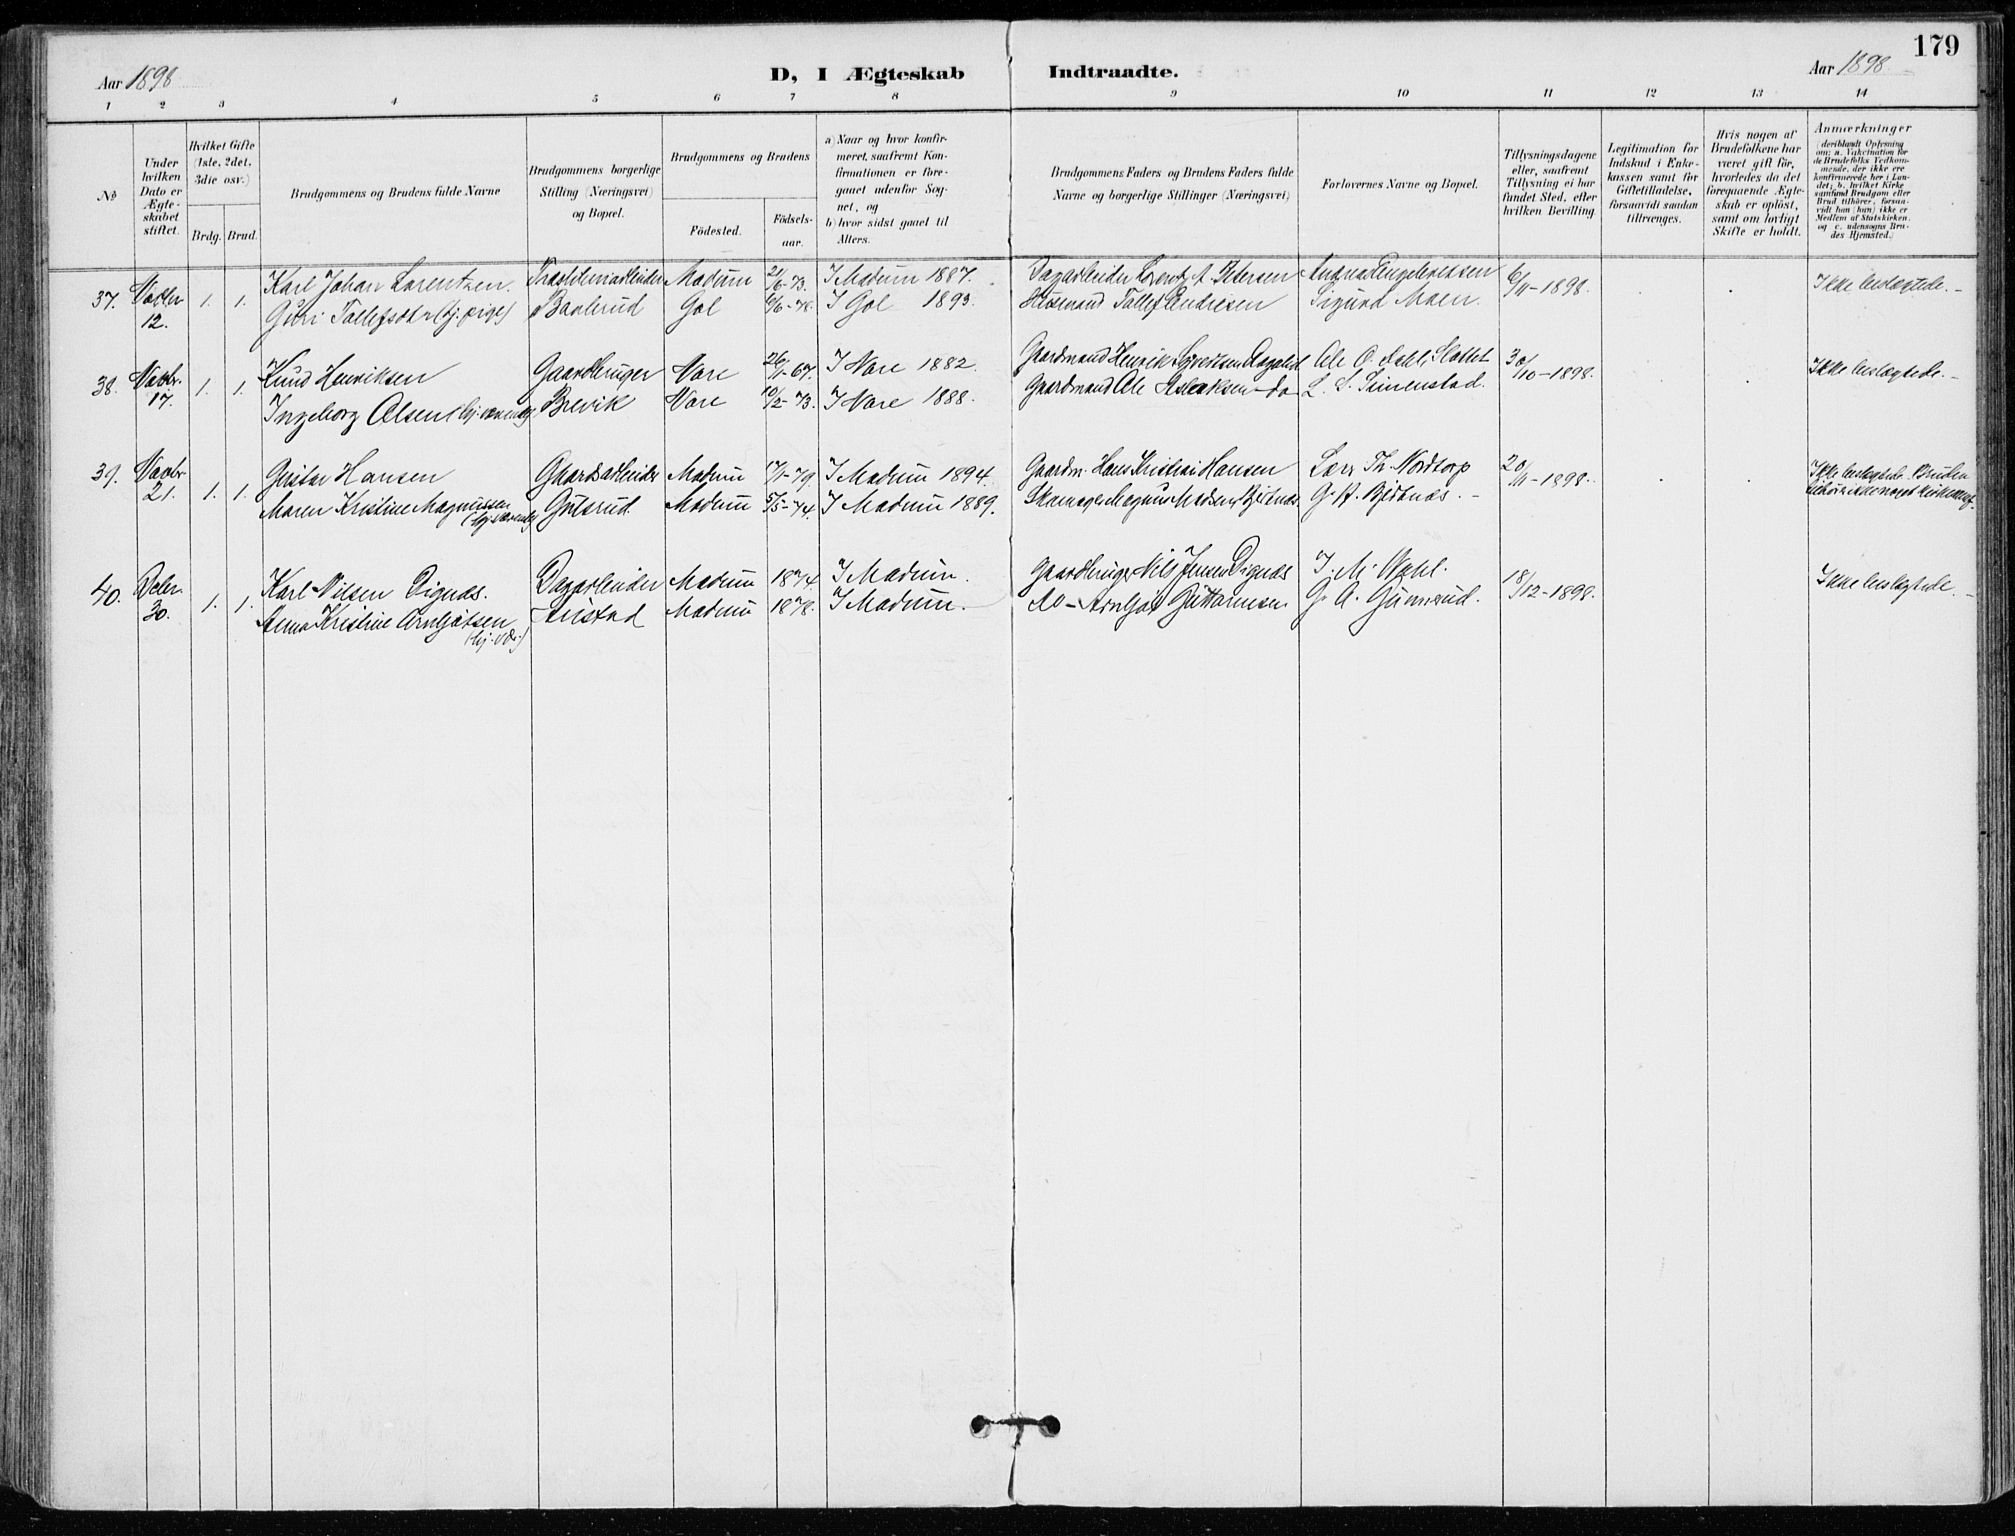 179
Aar 1898
D, I Ægteskab Indtraadte.
Aar 1898
1 2 3 4 5 6 7 8 9 10 11 12 13 14
No
Under hvilken Dato er Ægteskabet stiftet.
Hvilket Gifte (1ste, 2det, 3die osv.)
Brdg. Brud.
Brudgommens og Brudens fulde Navne
Brudgommens borgerlige Stilling (Næringsvei) og Bopæl.
Brudgommens og Brudens
Födested.
Födsels-aar.
a) Naar og hvor konfirmeret, saafremt Konfirmationen er foregaaet udenfor Sognet, og
b) hvor sidst gaaet til Alters.
Brudgommens Faders og Brudens Faders fulde Navne og borgerlige Stillinger (Næringsvei)
Forlovernes Navne og Bopæl.
Tillysningsdagene eller, saafremt Tillysning ei har fundet Sted, efter hvilken Bevilling.
Legitimation for Indskud i Enkekassen samt for Giftetilladelse, forsaavidt saadan tiltrænges.
Hvis nogen af Brudefolkene har været gift før, hvorledes da det foregaaende Ægteskab er oplöst, samt om lovligt Skifte er holdt.
Anmærkninger (deriblandt Oplysning om: a. Vakcination for de Brudefolks Vedkommende, der ikke ere konfirmerede her i Landet; b. hvilket Kirkesamfund Brudgom eller Brud tilhörer, forsaavidt han (hun) ikke er Medlem af Statskirken, og c. udensogns Brudes Hjemsted.)
37. Novbr 12. 1. 1. Karl Johan Lorentzen. Modum 21/6-73. I Modum 1887. Dagarbeider Lorentz A. Petersen 6/11-1898. Ikke beslægtede.-
Guri Tollefsdtr (hj. pige) Gol 6/6-78. I Gol 1893. Husmand Tollef Endresen Sigurd Moen.
38. Novbr. 17. 1. 1. Knud Henriksen Gaardbruger Nore 26/1-67. I Nore 1882. Gaardmand Henrik Ole O. Dahl, 30/10-1898. Ikke beslægtede.-
Ingeborg Olsen (hj. værende) Brevik Nore 10/2-73. I Nore 1888. Gaardmand Ole Aslaksen - do L. S. Simenstad.
39. Novbr. 21. 1. 1. Gustav Hansen Gaardsarbeider Modum 17/1-79. I Modum 1894. Gaardm. Hans Kristian Hansen Lærer Th. Nordtorp 20/11-1898. Ikke beslægtede. Bruden
Maren Kristine Magnussen (hj. værende) Gulsrud Modum 5/5-74. I Modum 1889. Skomager Magnus Madsen, G. A. tilhører ikke noget Kirkesamf.
40. Decbr. 30. 1. 1. Karl Nilsen Dignæs. Dagarbeider Modum 1874. I Modum. Gaardbruger Nils Jensen Dignæs J. M. 18/12-1898. Ikke beslægtede.-
Anna Kristine Arnljotsen (hj. vær.) Austad Modum 1878. I Modum. do - Arnljot Guttormsen G. A. Gunnerud.